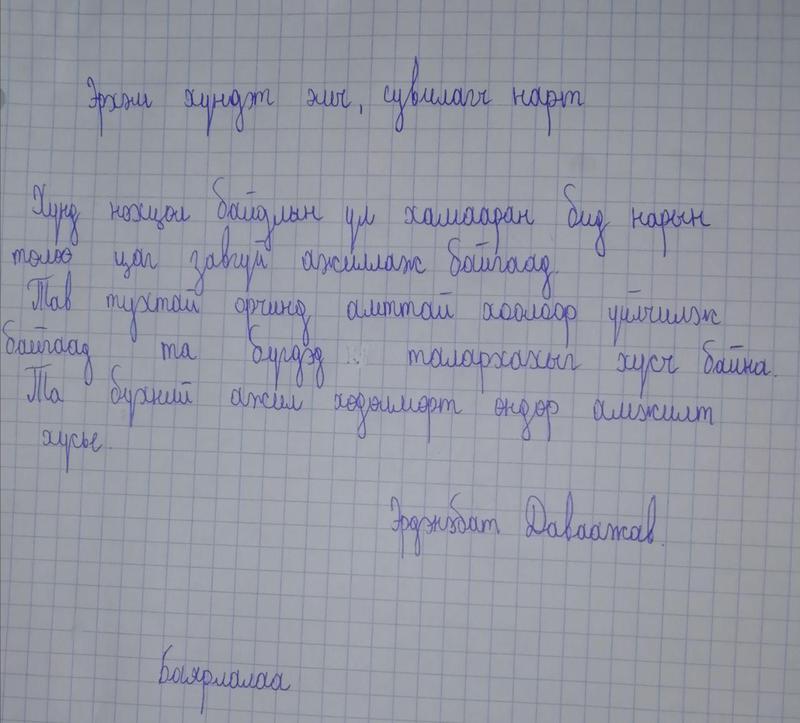 Эрхэм хүндэт эмч, сувилагч нарт
Хүнд нөхцөл байдлын үл хамааран бид нарын
төлөө цаг завгүй ажиллаж байгаад.
Тав тухтай орчинд амттай хоолоор үйлчилж
байгаад та бүгдэд талархахыг хүсч байна.
Та бүхний ажил хөдөлмөрт өндөр амжилт
хүсье.
Эрдэнэбат Даваажав.
Баярлалаа